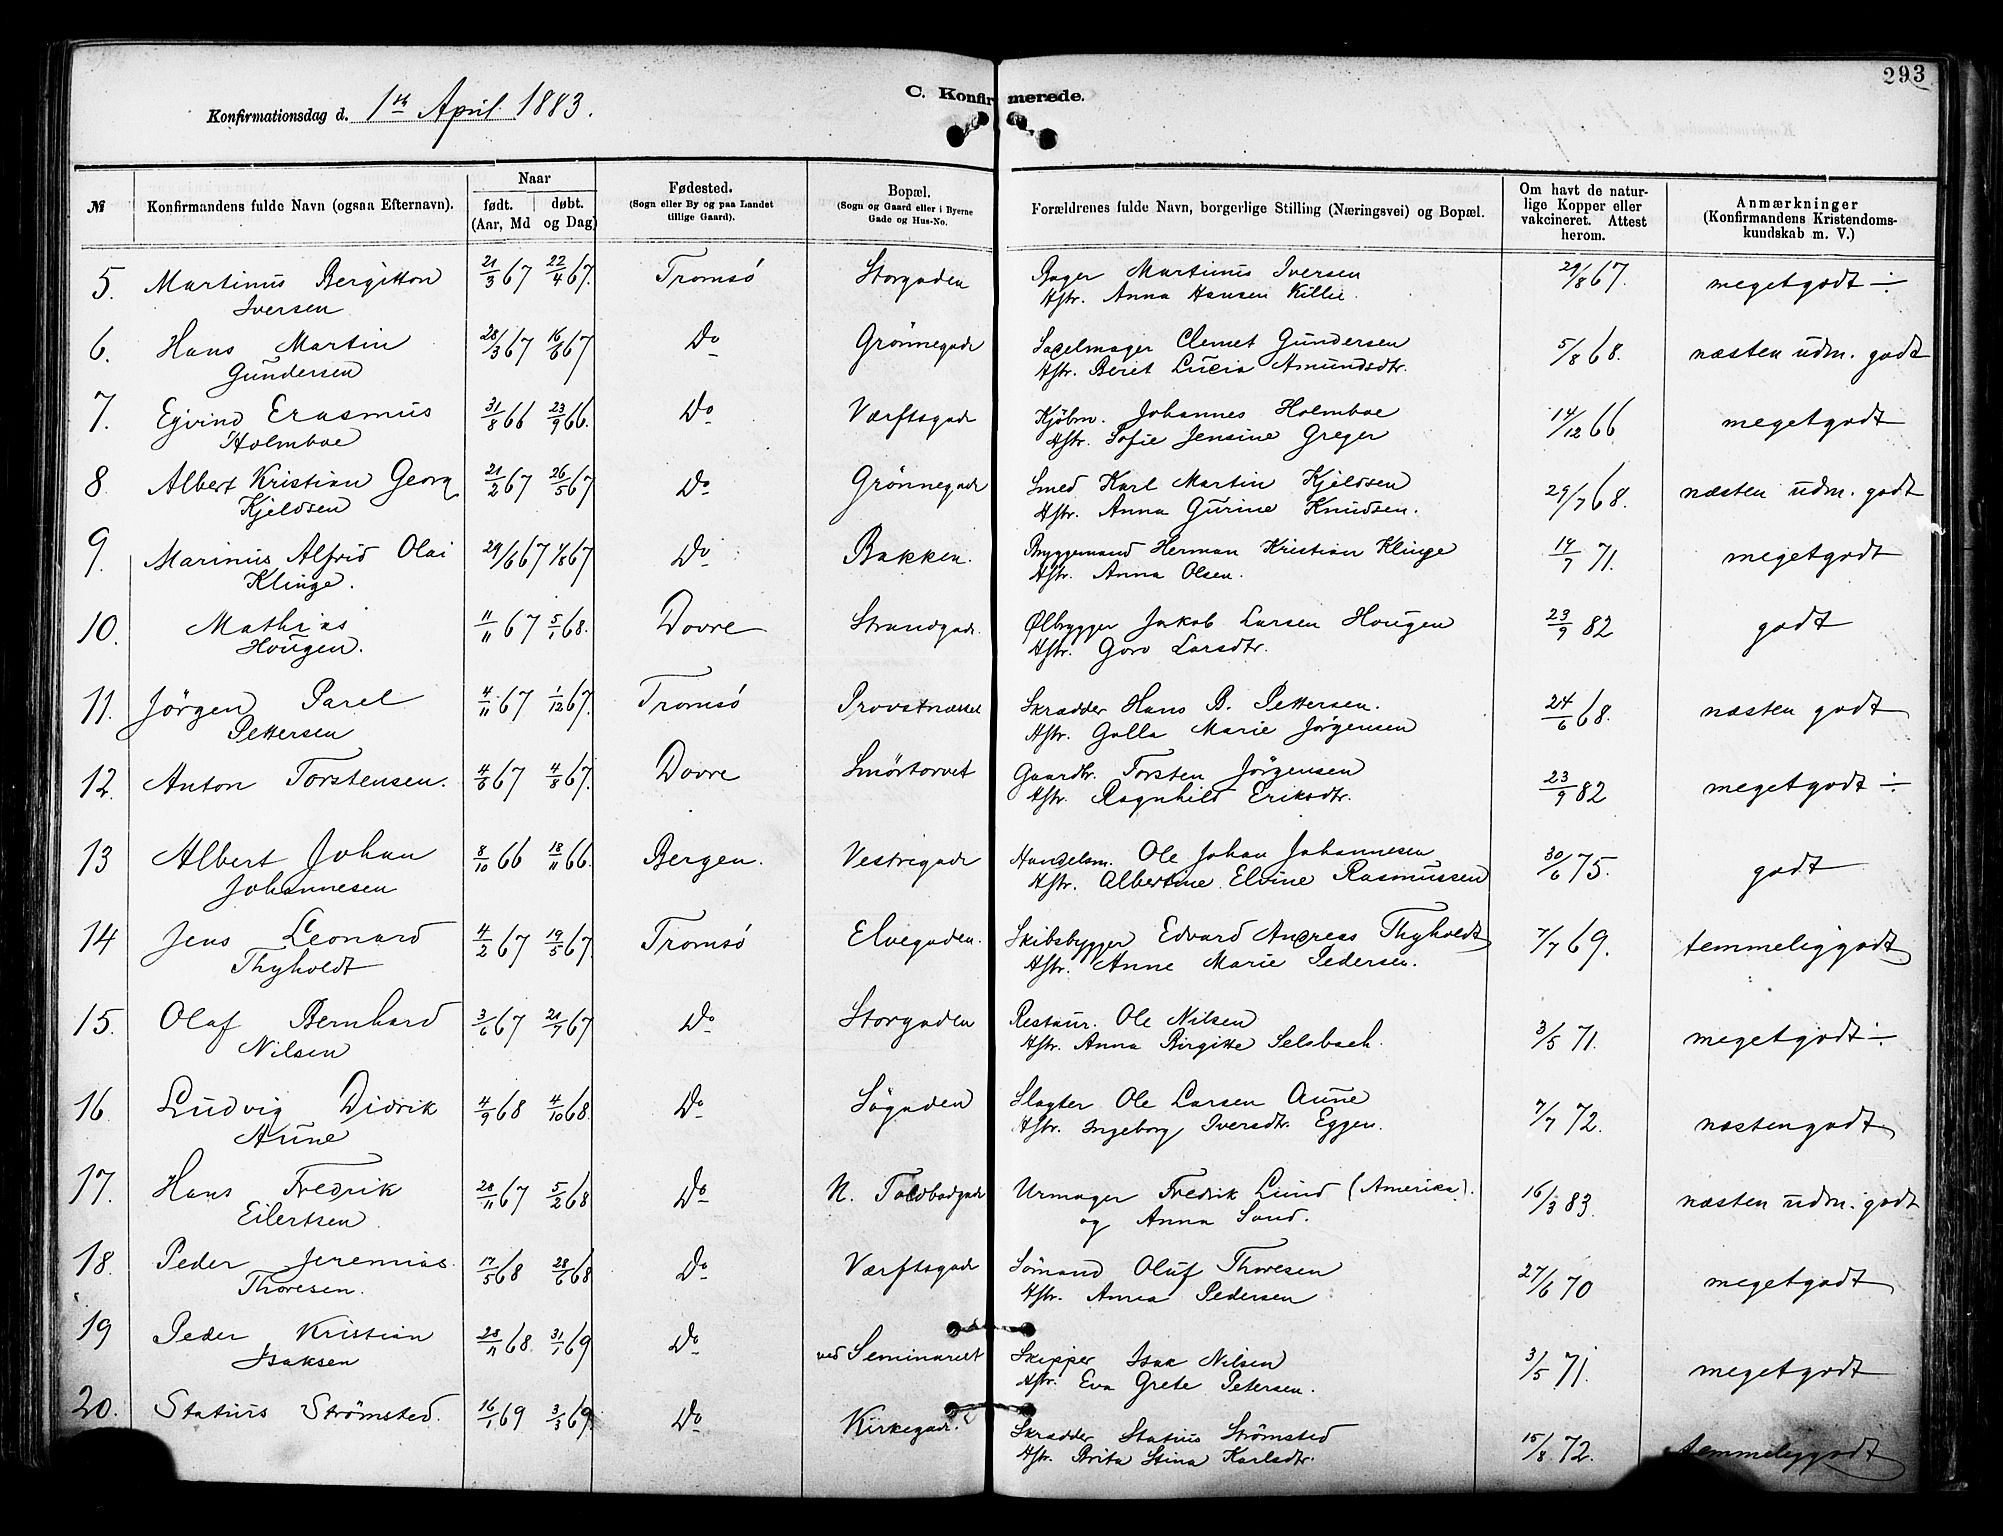 293
C. Konfirmerede.
Konfirmationsdag d. 1ste April 1883.
№ Konfirmandens fulde Navn (ogsaa Efternavn). Naar født. døbt. (Aar, Md og Dag) Fødested. (Sogn eller By og paa Landet tillige Gaard). Bopæl. (Sogn og Gaard eller i Byerne Gade og Hus-No. Forældrenes fulde Navn, borgerlige Stilling (Næringsvei) og Bopæl. Om havt de naturlige Kopper eller vakcineret. Attest herom. Anmærkninger (Konfirmandens Kristendomskundskab m. V.)
5. Martinus Bergitton 21/3 67 22/4 67. Tromsø Storgaden Bager Martinus Iversen 29/8 67. megetgodt ÷
Iversen Hstr. Anna Hansen Killie.
6. Hans Martin 28/3 67 16/6 67 Do Grønnegade Sadelmager Clemet Gundersen 5/8 68. næsten udm. godt
Gundersen Hstr. Berit Lucia Amundsdtr.
7. Ejvind Erasmus 31/8 66 23/9 66. Do Værftsgade Kjøbm. Johannes Holmboe 14/12 66 megetgodt
Holmboe Hstr. Sofie Jensine Greger
8. Albert Kristian Georg 21/2 67 26/5 67 Do Grønnegade Smed Karl Martin Kjeldsen 29/7 68. næsten udm. godt
Kjeldsen Hstr. Anna Gurine Knudsen.
9. Marinus Alfrid Olai 29/6 67 1/8 67 Do Bakken. Bryggemand Herman Kristian Klinge 14/7 71. megetgodt
Klinge. Hstr. Anna Olsen.
10. Mathias 11/11 67 5/1 68. Dovre Strandgade. Ølbrygger Jakob Larsen Hougen 23/9 82 godt
Hougen. Hstr. Goro Larsdtr.
11. Jörgen Parel 4/11 67 1/12 67. Tromsø Provstnæsset Skrædder Hans B. Pettersen. 24/6 68. næsten godt
Pettersen Hstr. Golla Marie Jørgensen
12. Anton Torstensen. 4/6 67 4/8 67. Dovre Smörtorvet Gaardbr. Torsten Jörgensen 23/9 82 megetgodt ÷
Hstr. Ragnhild Eriksdtr.
13 Albert Johan 8/10 66 18/11 66. Bergen. Vestregade Handelsm. Ole Johan Johannesen 30/6 75. godt
Johannesen Hstr. Albertine Elvine Rasmussen
14 Jens Leonard 4/2 67 19/5 67. Tromsø Elvegaden. Skibsbygger Edvard Andreas Thyholdt 7/7 69. temmeliggodt
Thyholdt Hstr. Anne Marie Pedersen.
15. Olaf Bernhard 3/6 67 21/7 67 Do Storgaden Restaur. Ole Nilsen 3/5 71. megetgodt ÷
Nilsen Hstr. Anna Birgitte Selsbach.
16. Ludvig Didrik 4/9 68 4/10 68 Do Søgaden Slagter Ole Larsen Aune 7/7 72. næstengodt
Aune Hstr. Ingeborg Iversdtr. Eggen.
17. Hans Fredrik 28/11 67 5/2 68 Do N. Toldbodgade Urmager Fredrik Lund (Amerika). 16/3 83. næsten udm. godt
Eilertsen og Anna Sand.
18. Peder Jeremias 17/5 68 28/6 68 Do Værftsgade Sømand Oluf Thoresen 27/6 70 megetgodt
Thoresen. Hstr. Anna Pedersen
19 Peder Kristian 28/11 68. 31/1 69 Do ved Seminariet Skipper Isak Nilsen 3/5 71. megetgodt
Isaksen Hstr. Eva Grete Petersen.
20. Statius Strömsted. 16/1 69 3/3 69. Do Kirkegade. Skrædder Statius Strömsted 15/8 72. temmeliggodt
Hstr. Brita Stina Karlsdtr.